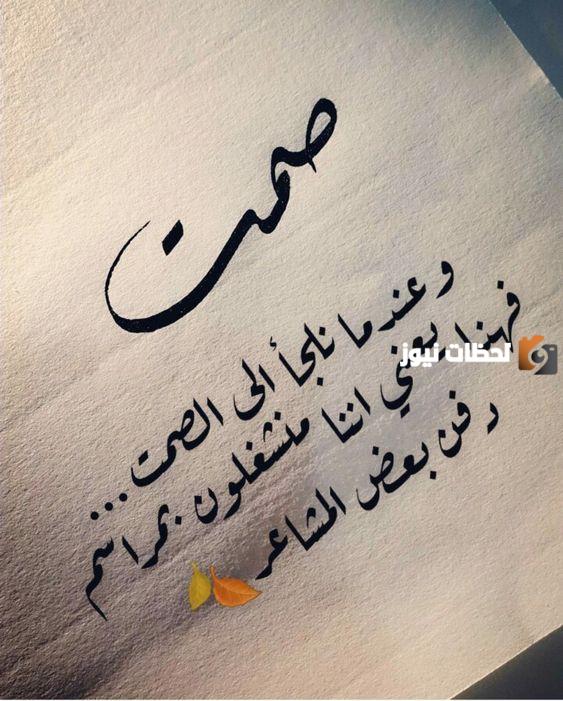 صمت
وعندما نلجأ الى الصمت...
يعني اننا منشغلون بمراسم
دفن بعض المشاعر
لحظات نيوز